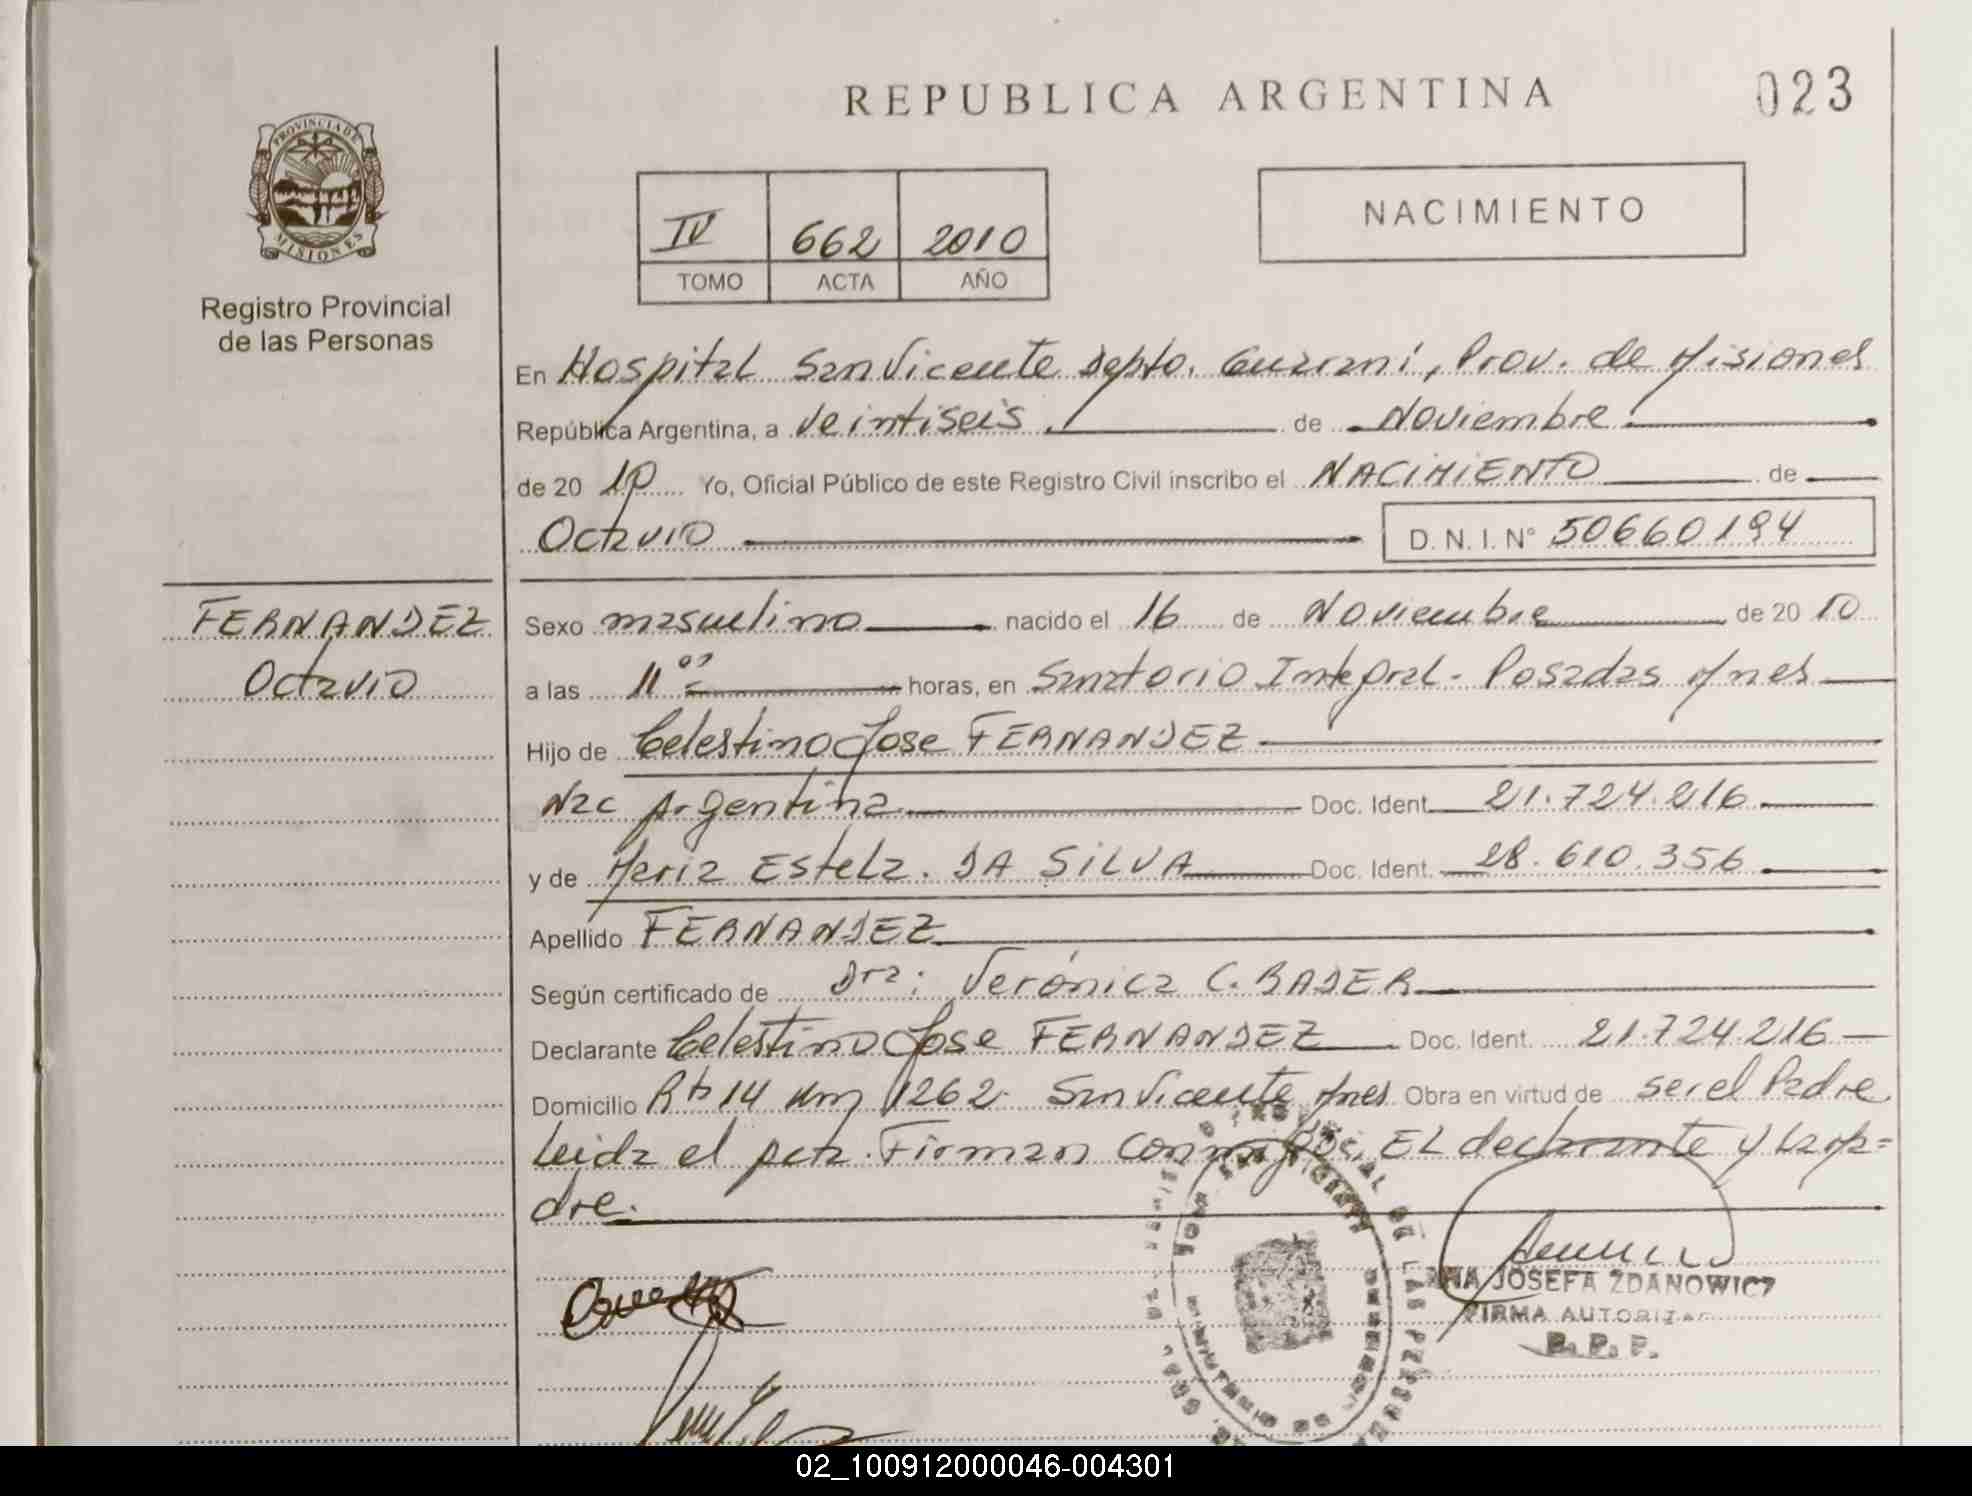 REPUBLICA ARGENTINA
023
PROVINCIA DE
MISIONES
Registro Provincial
de las Personas
IV 662 2010
TOMO ACTA AÑO
NACIMIENTO
En Hospital San Vicente depto. Guaraní, Prov. de Misiones
República Argentina, a veintiseis de Noviembre
de 20 10 Yo, Oficial Público de este Registro Civil inscribo el NACIMIENTO de
Octavio
D. N. I. N° 50660194
FERNANDEZ
Octavio
Sexo masculino nacido el 16 de Noviembre de 20 10
a las 11 horas, en Sanatorio Integral - Posadas Mnes
Hijo de Celestino Jose FERNANDEZ
Nac Argentina Doc. Ident. 21.724.216
y de Maria Estela DA SILVA Doc. Ident. 28.610.356
Apellido FERNANDEZ
Según certificado de Dra: Verónica C. BADER
Declarante Celestino Jose FERNANDEZ Doc. Ident. 21.724.216
Domicilio Rta 14 Km 1262 San Vicente Mnes Obra en virtud de ser el Padre
Leida el acta Firman conmigo; El declarante y La ma=
dre.
JOSEFA ZDANOWICZ
FIRMA
R. P. P.
02_100912000046-004301